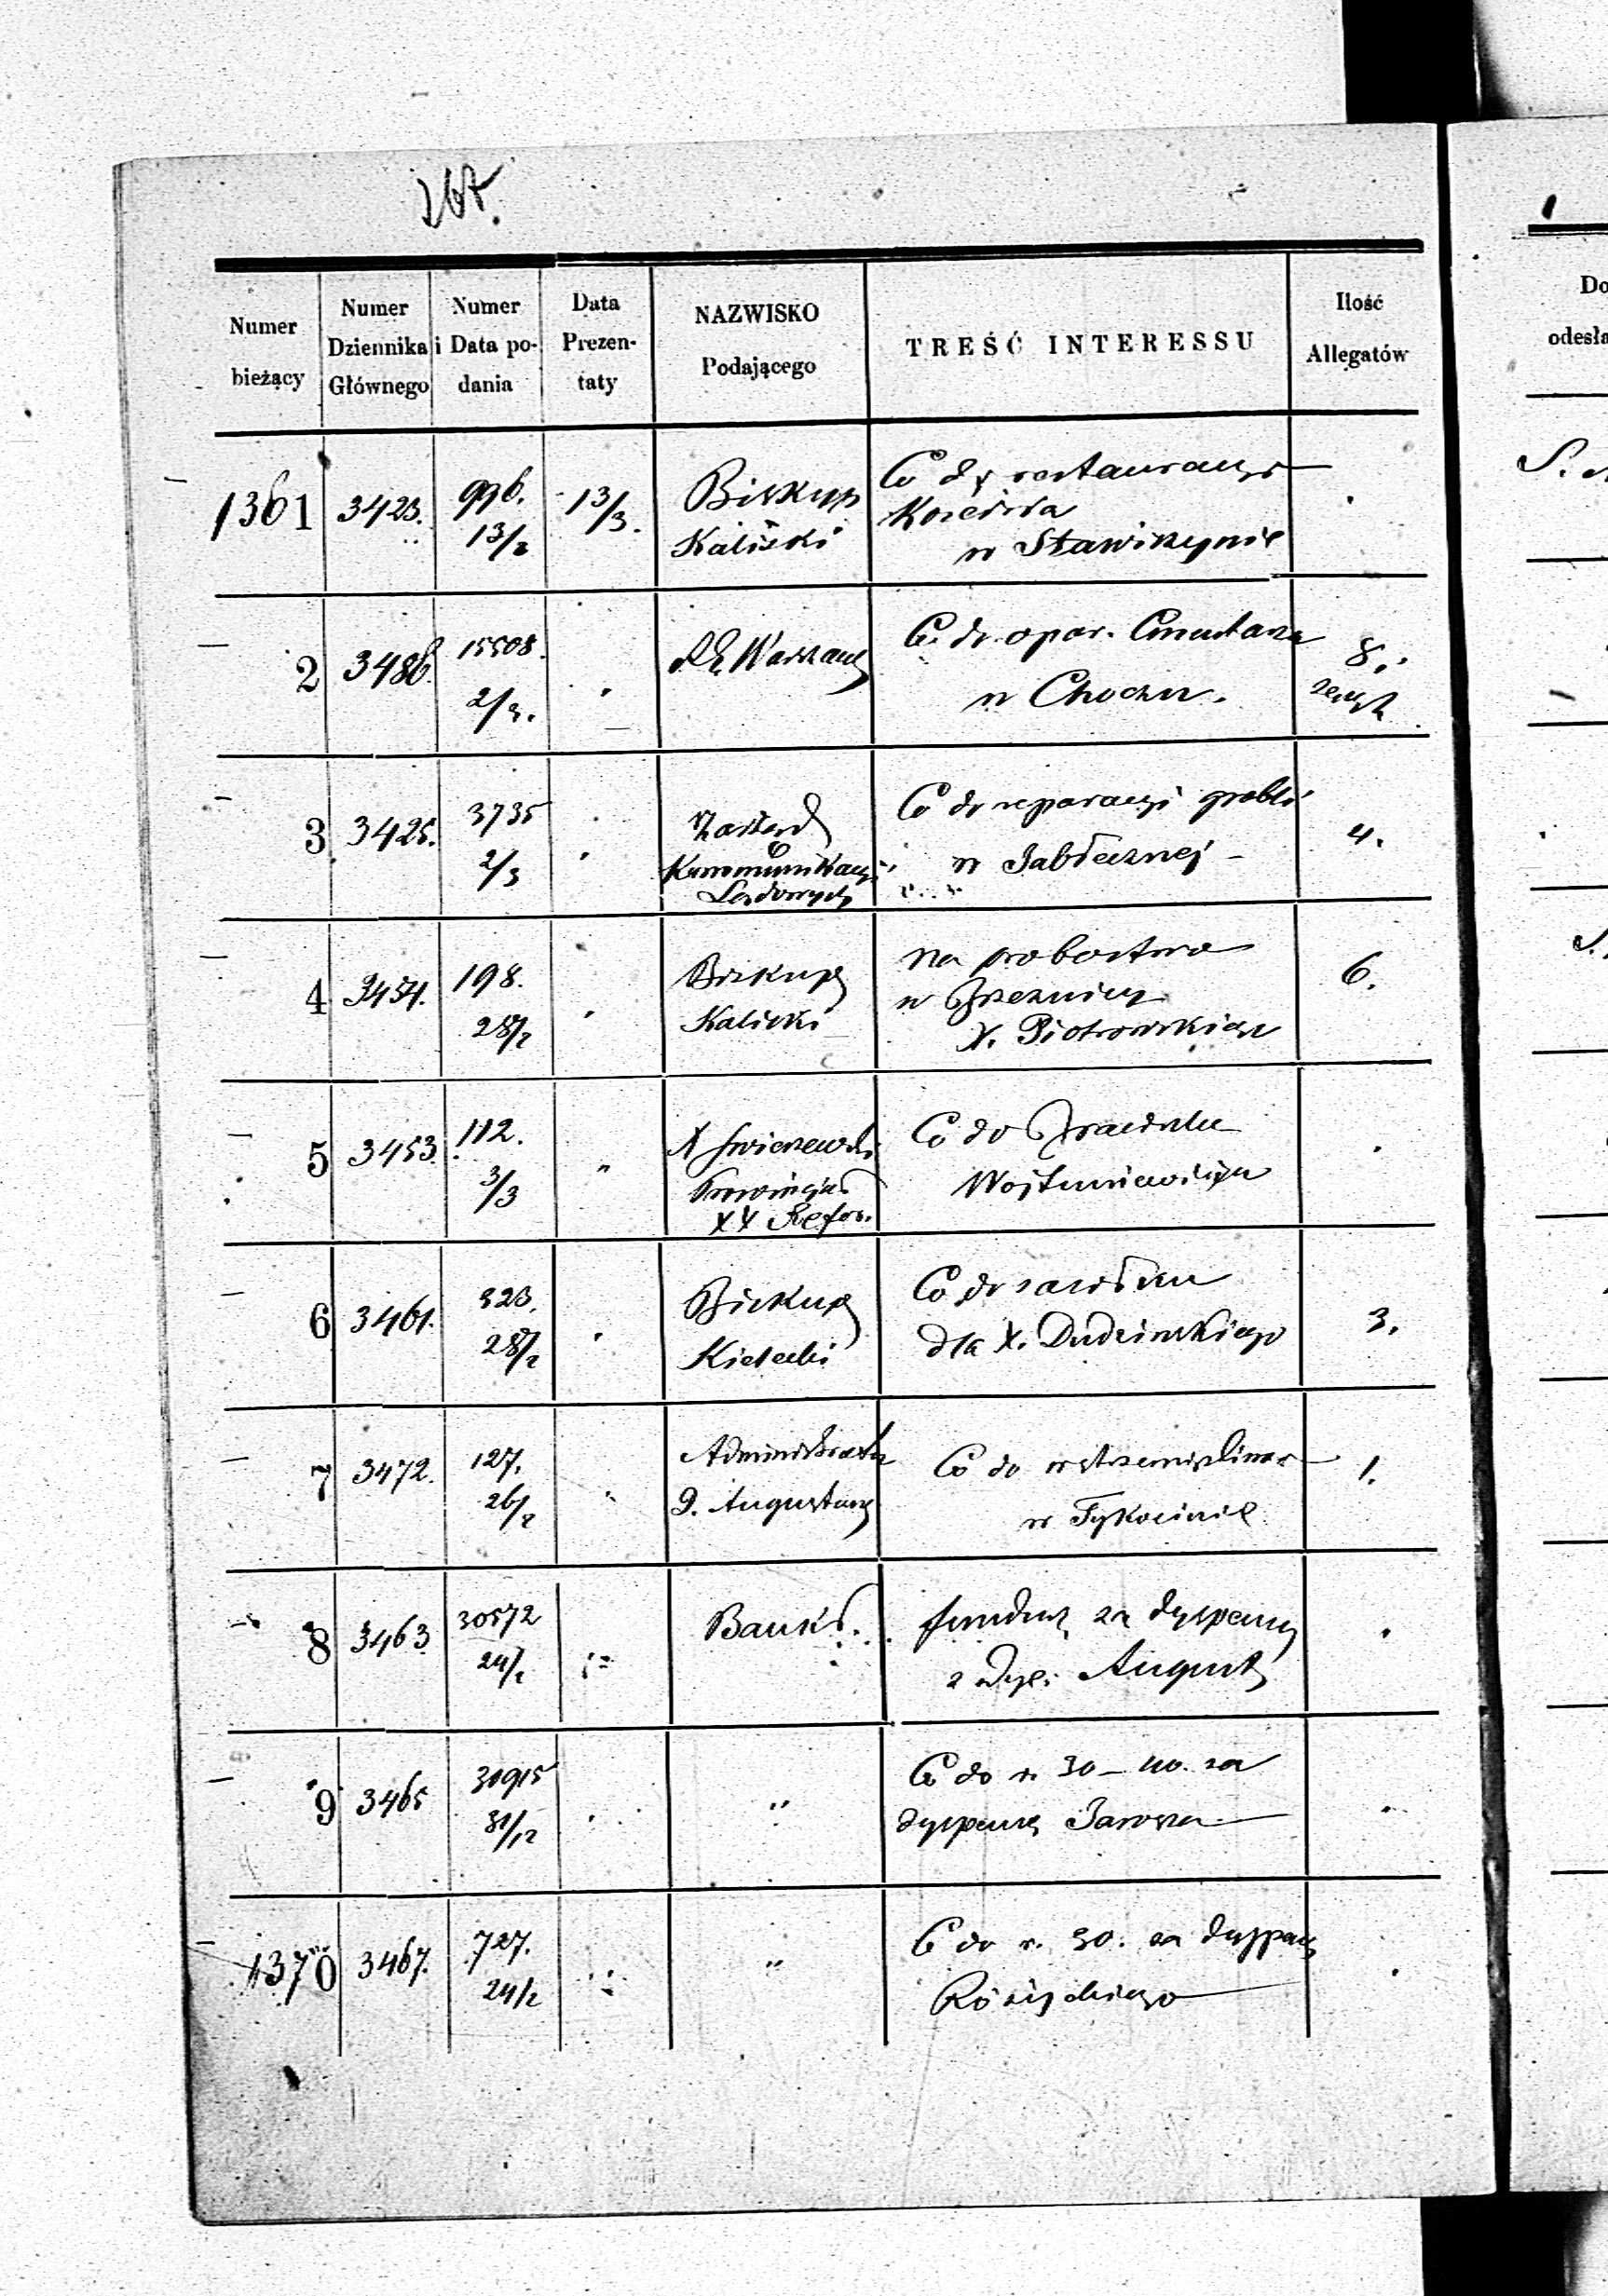 267.
Numer bieżący
Numer Dziennika Głównego
Numer i Data podania
Data Prezentaty
NAZWISKO Podającego
TREŚĆ INTERESSU
Ilość Allegatów
Do
odesła
1361 3423. 996. 13/2 13/3.
Biskup
Kaliski
Co do restauracyi
Kościoła
w Stawiszynie
2 3486. 15508. 2/3.
Co do
Cmentarza
w Choczu.
8.
3 3425. 3735 2/3
Zarząd
Kommunikacyi
Lądowych
Co do reparacyi grobli
w Jabłecznej
4.
4 3454. 198. 28/2
Biskup
Kaliski
Na probostwo
w Brzeznicy
X. Piotrowskiego
6.
5 3453. 112. 3/3 "
Prowincjał
XX Refor.
Co do
6 3461. 323. 28/2
Biskup
Kielecki
Co do
dla X. Dudzińskiego
3.
7 3472. 127. 26/2
Administrator
D. Augustows
Co do
w Tykocinie
1.
8 3463 30572 24/2
Bank
fundusz za dyspensy
z Dyec. August
9 3465 30915 31/12
"
Co do r. 30 – 40. za
dyspensę
1370 3467. 727. 24/2
"
Co do r. 30. za dyspens
S.